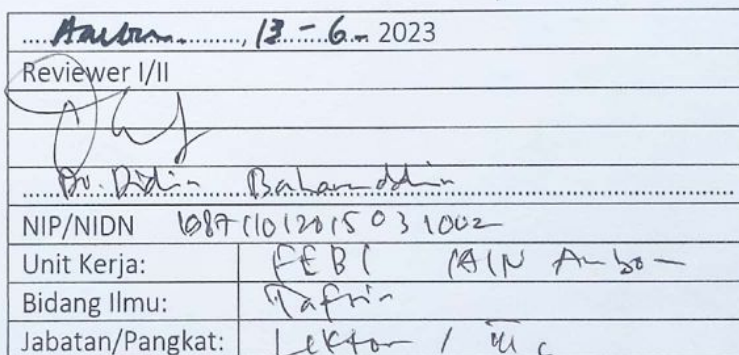 Ambon, 13 - 6 - 2023
Reviewer I/II
Dr. Didin Baharuddin
NIP/NIDN
Unit Kerja: FEBI IAIN Ambon
Bidang Ilmu: Tafsir
Jabatan/Pangkat: Lektor / III c